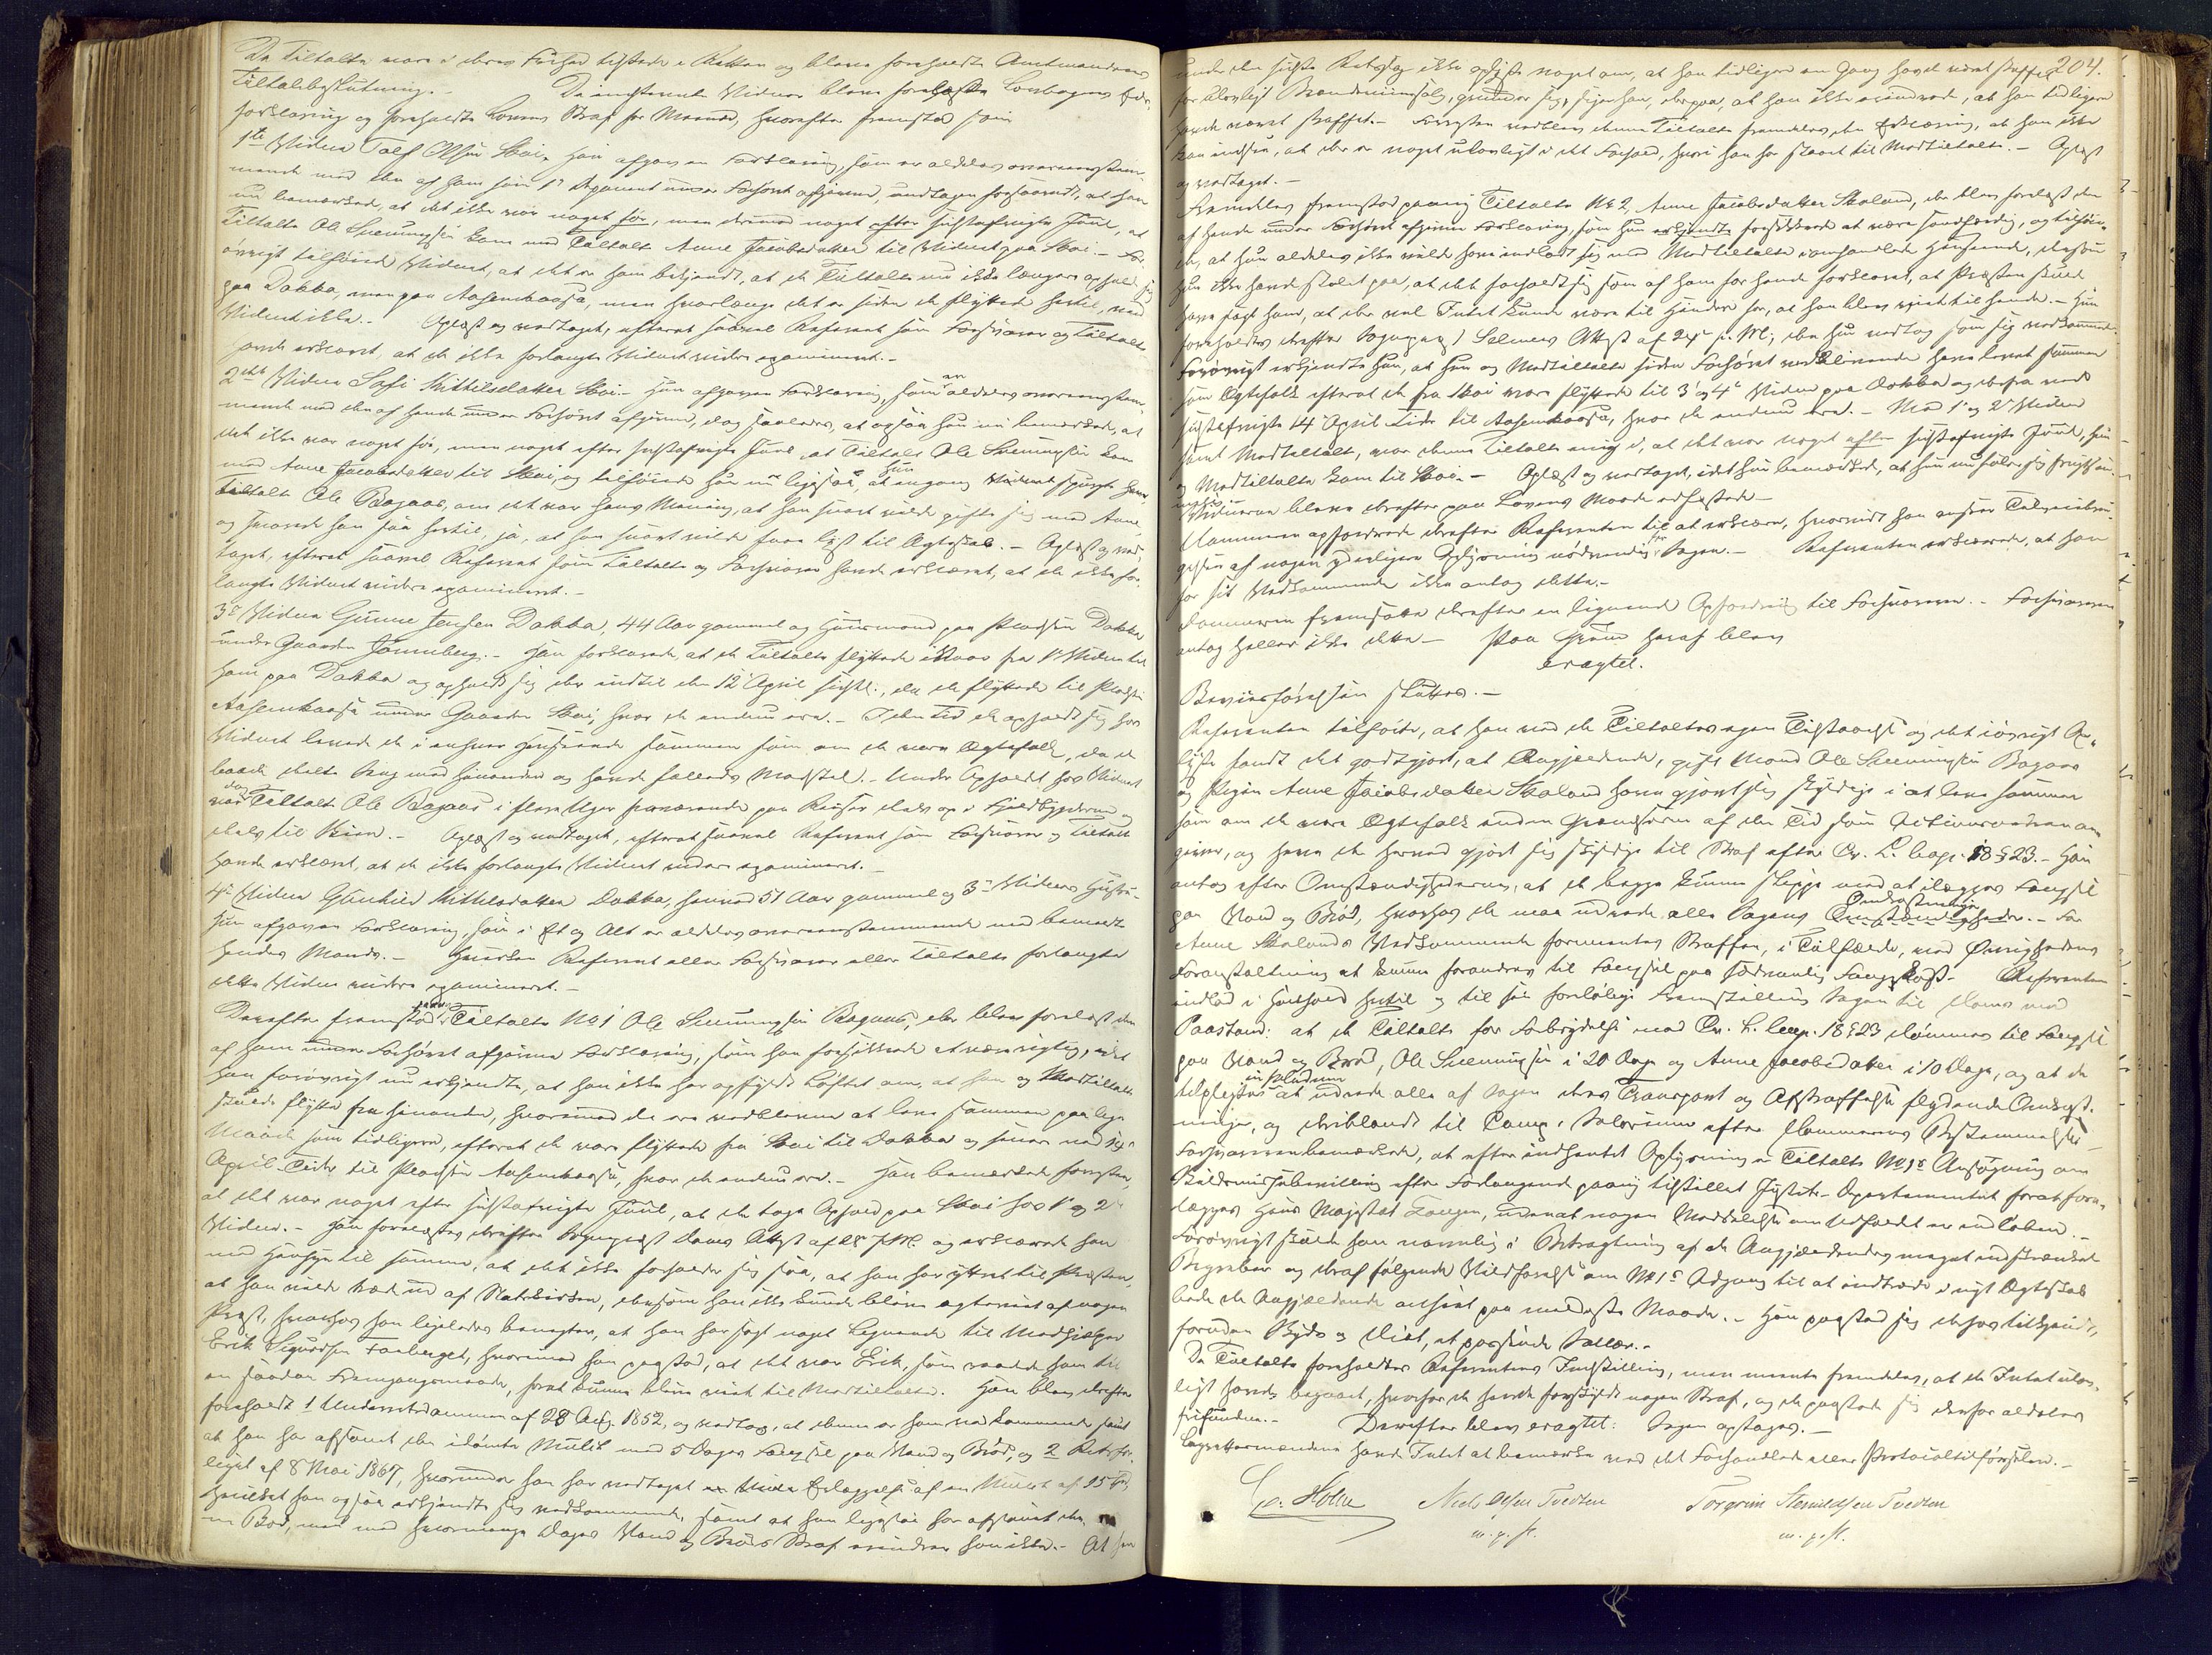 De Tiltalte vare i deres Forfald tilstede i Retten og bleve foreholdte Amtmandens
Tiltalebeslutning. – De indstevnte Vidner bleve forelæste Lovbogens Eds-
forklaring og foreholdte Lovens Straf for Meened, hvorefter fremstod som
1ste Vidne Talf Olsen Skoi. Han afgav en Forklaring, som er aldeles overeensstem-
mende med den af ham som 1ste Deponent under Forhøret afgivne, undtagen forsaavidt, at han
nu bemærkede, at det ikke var noget før, men derimod noget efter sidstafvigte Juul, at
Tiltalte Ole Svenningsen kom med Tiltalte Anne Jacobsdatter til Vidnet paa Skoi. – For-
øvrigt tilføiede Vidnet, at det er ham bekjendt, at de Tiltalte nu ikke længere opholde sig
paa Dokka, men paa Aasemkaasa, men hvorlænge det er siden de flyttede hertil, veed
Vidnet ikke. – Oplæst og vedtaget, efterat saavel Referent som Forsvarer og Tiltalte
havde erklæret, at de ikke forlangte Vidnet videre examineret. –
2det Vidne Sofi Kittilsdatter Skoi. – Hun afgav en Forklaring, som er aldeles overeensstem-
mende med den af hende under Forhøret afgivne, dog saaledes, at ogsaa hun nu bemærkede, at
det ikke var noget før, men noget efter sidstafvigte Juul at Tiltalte Ole Svenningsen kom
med Anne Jacobsdatter til Skoi, og tilføiede hun nu ligesaa, at engang Vidnet spurgte hun
Tiltalte Ole Bogaas, om det var hans Mening, at han snart vilde gifte sig med Anne,
og svarede han saa hertil, ja, at han snart vilde faae lyst til Ægteskab. – Oplæst og ved-
taget, efterat saavel Referent som Tiltalte og Forsvarer havde erklæret, at de ikke for-
langte Vidnet videre examineret. –
3die Vidne Gunne Jensen Dokka, 44 Aar gammel og Huusmand paa Pladsen Dokka
under Gaarden Sønnberg. – Han forklarede, at de Tiltalte flyttede i Vaar fra 1ste Vidne til
ham paa Dokka og opholdt sig der indtil den 12 April sidstl., da de flyttede til Pladsen
Aasemkaasa under Gaarden Skoi, hvor de endnu ere. – I den Tid de opholdt sig hos
Vidnet levede de i enhver Henseende sammen som om de vare Ægtefolk, da de
baade deelte Seng med hinanden og havde fælleds Madstel. – Under Opholdet hos Vidnet
var dog Tiltalte Ole Bogaas i flere Uger fraværende paa Reiser dels op i Fjeldbygderne og
dels til Skien. – Oplæst og vedtaget, efterat saavel Referent som Forsvarer og Tiltalte
havde erklæret, at de ikke forlangte Vidnet videre examineret. –
4de Vidne Gunhild Kittelsdatter Dokka, henved 51 Aar gammel og 3die Vidnes Hustru.
Hun afgav en Forklaring, som i Et og Alt er aldeles overeensstemmende med bemeldte
hendes Mands. – Hverken Referent eller Forsvarer eller Tiltalte forlangte
dette Vidne videre examineret. –
Derefter fremstod paany Tiltalte No 1 Ole Svenningsen Bogaas, der blev forelæst den
af ham under Forhøret afgivne Forklaring, som han forsikkrede at være rigtig, idet
han forøvrigt nu erkjendte, at han ikke har opfyldt Løftet om, at han og Medtiltalte
skulde flytte fra hinanden, hvorimod de ere vedblevne at leve sammen paa lige
Maade som tidligere, efterat de vare flyttede fra Skoi til Dokka og senere ved sidste
April Tider til Pladsen Aasemkaasa, hvor de endnu ere. – Han bemærkede forresten,
at det var noget efter sidstafvigte Juul, at de toge Ophold paa Skoi hos 1ste og 2det
Vidner. – Han forelæstes derefter Sognepræst Daves Attest af 28 f. M. og erklærede han
med Hensyn til samme, at det ikke forholder sig saa, at han har yttret til Præsten,
at han vilde træde ud af Statskirken, dersom han ikke kunde blive ægteviet af nogen
Præst, hvorhos han ligeledes benegter, at han har sagt noget Lignende til Medhjælper
Erik Sigurdsen Faaberget, hvorimod han paastod, at det var Erik, som raadede ham til
en saadan Fremgangsmaade, forat kunne blive viet til Medtiltalte. Han blev derefter
foreholdt 1 Underretsdommen af 28 Aug. 1852, og vedtog, at denne er ham vedkommende samt
at han har afsonet den idømte Mulct med 5 Dages Fængsel paa Vand og Brød, og 2 Retsfor-
liget af 8 Mai 1867, hvorunder han har vedtaget Erlæggelse af en Mulct af 15 Spd,
hvilket han ogsaa erkjendte sig vedkommende, samt at han ligesaa har afsonet den-
ne Bod, men med hvormange Dages Vand og Brøds Straf erindrer han ikke. – At han
204.
under den sidste Retsdag ikke oplyste noget om, at han tidligere en Gang havde været straffet
for ulovligt Brændeviinssalg, grunder sig, siger han, derpaa, at han ikke erindrede, at han tidligere
havde været straffet. – Forresten vedblev denne Tiltalte fremdeles den Erklæring, at han ikke
kan indsee, at der er noget ulovligt i det Forhold, hvori han har staaet til Medtiltalte. – Oplæst
og vedtaget. –
Fremdeles fremstod paany Tiltalte No 2, Anne Jacobsdatter Skoland, der blev forelæst den
af hende under Forhøret afgivne Forklaring, som hun erkjendte forsikkrede at være sandfærdig, og tilføie-
de, at hun aldeles ikke vilde have indladt sig med Medtiltalte i omhandlede Henseende, dersom
hun ikke havde stolet paa, at det forholdt sig som af ham for hende forklaret, at Præsten skulde
have sagt ham, at der vel Intet kunde være til Hinder for, at han blev viet til hende. – Hun
foreholdtes derefter Sognepræst Selmers Attest af 24de p. M., den hun vedtog som sig vedkommende.
Forøvrigt erkjendte hun, at hun og Medtiltalte siden Forhøret vedblivende have levet sammen
som Ægtefolk efterat de fra Skoi vare flyttede til 3die og 4de Vidne paa Dokka og derfra ved
sidstafvigte 14 April Tider til Aasemkaasa, hvor de endnu ere. – Med 1ste og 2det Vidne
samt Medtiltalte, var denne Tiltalte enig i, at det var noget efter sidstafvigte Juul, hun
og Medtiltalte kom til Skoi. – Oplæst og vedtaget, idet hun bemærkede, at hun nu føler sig frugtsom-
melig.
Vidnerne bleve derefter paa Lovens Maade edfæstede –
Dommeren opfordrede derefter Referenten til at erklære, hvorvidt han ansaae Tilveiebrin-
gelsen af nogen yderligere Oplysning nødvendig for Sagen. – Referenten erklærede, at han
for sit Vedkommende ikke antog dette. –
Dommeren fremsatte derefter en lignende Opfordring til Forsvareren. – Forsvareren
antog heller ikke dette – Paa Grund heraf blev
eragtet.
Beviisførelsen sluttes. –
Referenten tilføiede, at han ved de Tiltaltes egen Tilstaaelse og det iøvrigt Op-
lyste fandt det godtgjort, at Angjældende, gifte Mand Ole Svenningsen Bogaas
og Pigen Anne Jacobsdatter Skoland have gjort sig skyldige i at leve sammen
som om de vare Ægtefolk inden Grændserne af den Tid som Actionsordren an-
giver, og have de herved gjort sig skyldige til Straf efter Cr. L. Cap. 18 § 23. – Han
antog efter Omstændighederne, at de begge kunne slippe med at ilægges Fængsel
paa Vand og Brød, hvorhos de maa udrede alle Sagens Omkostninger. – For
Anne Skolands Vedkommende formentes Straffen, i Tilfælde, ved Øvrighedens
Foranstaltning at kunne forandres til Fængsel paa sædvanlig Fangekost. – Referenten
indlod i Henhold hertil og til sin foreløbige Fremstilling Sagen til Doms med
Paastand: at de Tiltalte for Forbrydelse mod Cr. L. Cap. 18 § 23 dømmes til Fængsel
paa Vand og Brød, Ole Svenningsen i 20 Dage og Anne Jacobsdatter i 10 Dage, og at de
tilpligtes in solidum at udrede alle af Sagen deres Transport og Afstraffelse flydende Omkost-
ninger, og deriblandt til Comp. Salarium efter Dommerens Bestemmelse –
Forsvareren bemærkede, at efter indhentet Oplysning er Tiltalte No 1s Ansøgning om
Skilsmissebevilling efter Forlangende paany tilstillet Justits-Departementet forat fore-
lægges Hans Majestæt Kongen, uden at nogen Meddelelse om Udfaldet er indløben. –
Forøvrigt skulde han navnlig i Betragtning af de Angjældendes meget indskrænket
Begreber og deraf følgende Vildfarelse om No 1s Adgang til at indtræde i nyt Ægteskab
bede de Angjældende anseet paa mildeste Maade. – Han paastod sig derhos tilkjendt,
foruden Skyds og Diet, et passende Salair. –
De Tiltalte foreholdtes Referentens Indstilling, men meente fremdeles, at de Intet ulov-
ligt havde begaaet, hvorfor de havde forskyldt nogen Straf, og de paastode sig derfor aldeles
frifundne. – Derefter blev eragtet: Sagen optages. –
Lagrettemændene havde Intet at bemærke ved det Forhandlede eller Protocoltilførselen. –
C. Holm Niels Olsen Tvedten Torgrim Stenulsen Tvedten
m. p. P. m. p. P.